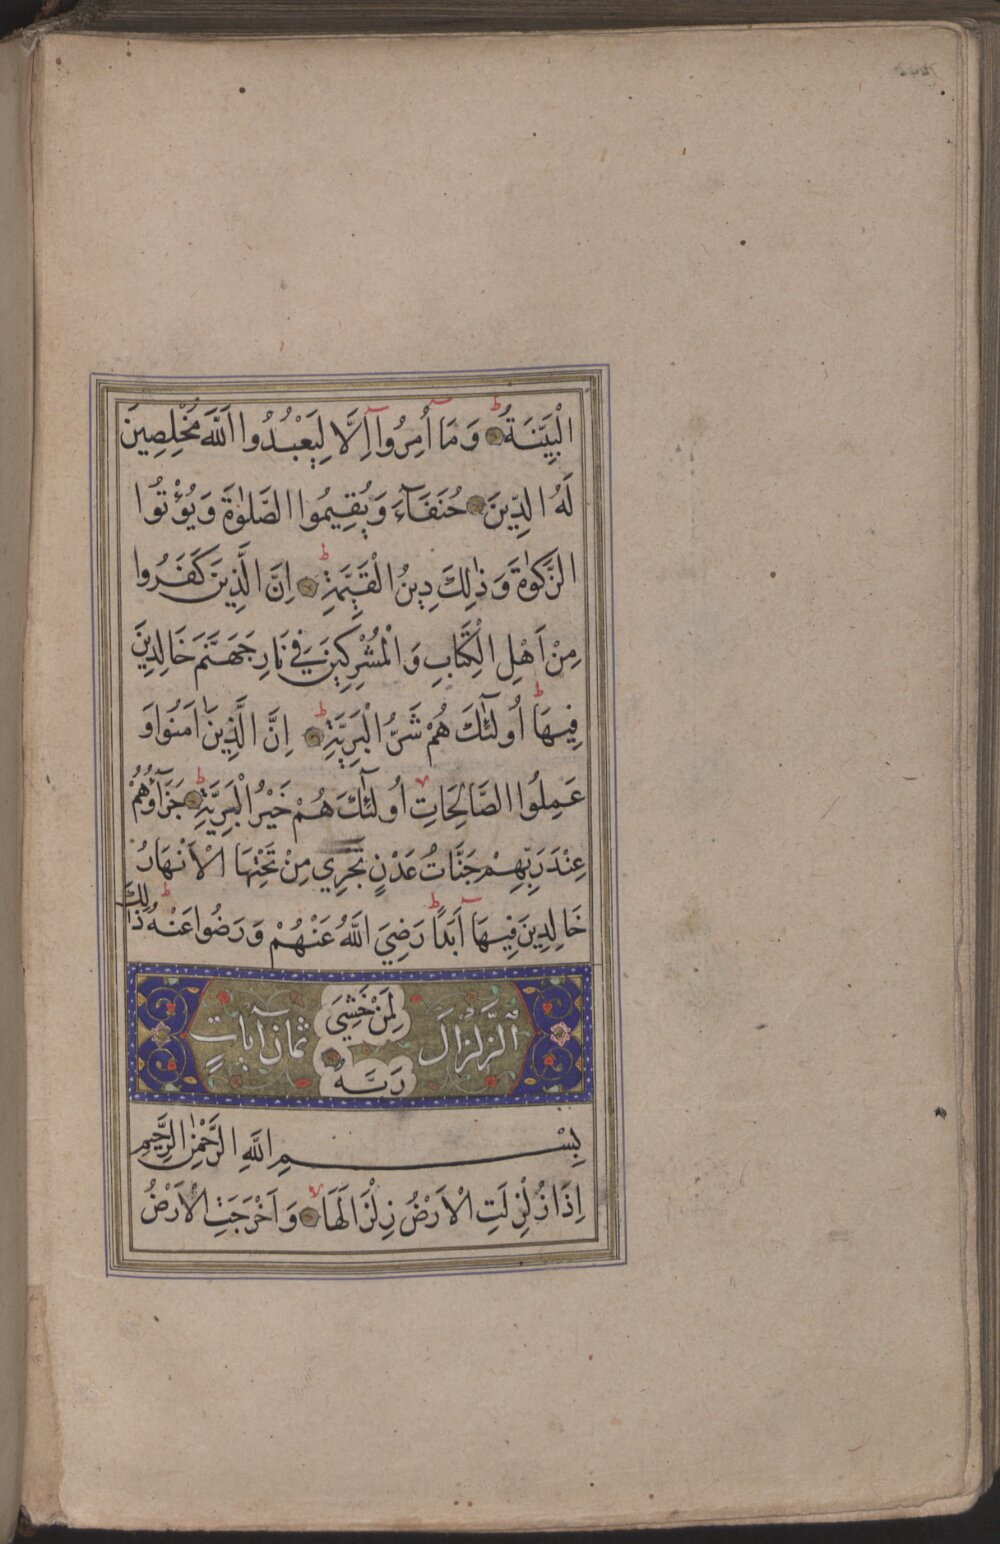 الْبَيِّنَةُ ۝ وَمَآ أُمِرُوٓا اِلَّا لِيَعْبُدُوا اللّٰهَ مُخْلِصِينَ
لَهُ الدِّينَ ۝ حُنَفَآءَ وَيُقِيمُوا الصَّلٰوةَ وَيُؤْتُوا
الزَّكٰوةَ وَذٰلِكَ دِينُ الْقَيِّمَةِ ۝ اِنَّ الَّذِينَ كَفَرُوا
مِنْ اَهْلِ الْكِتَابِ وَالْمُشْرِكِينَ فِي نَارِ جَهَنَّمَ خَالِدِينَ
فِيهَا اُولٰٓئِكَ هُمْ شَرُّ الْبَرِيَّةِ ۝ اِنَّ الَّذِينَ اٰمَنُوا وَ
عَمِلُوا الصَّالِحَاتِ اُولٰٓئِكَ هُمْ خَيْرُ الْبَرِيَّةِ ۝ جَزَآؤُهُمْ
عِنْدَ رَبِّهِمْ جَنَّاتُ عَدْنٍ تَجْرِي مِنْ تَحْتِهَا الْاَنْهَارُ
خَالِدِينَ فِيهَآ اَبَدًا رَضِيَ اللّٰهُ عَنْهُمْ وَرَضُوا عَنْهُ ذٰلِكَ
لِمَنْ خَشِيَ
رَبَّهُ ۝
اَلزَّلْزَالِ ثَمَانُ آيَاتٍ
بِسْمِ اللّٰهِ الرَّحْمٰنِ الرَّحِيمِ
اِذَا زُلْزِلَتِ الْاَرْضُ زِلْزَالَهَا ۝ وَاَخْرَجَتِ الْاَرْضُ